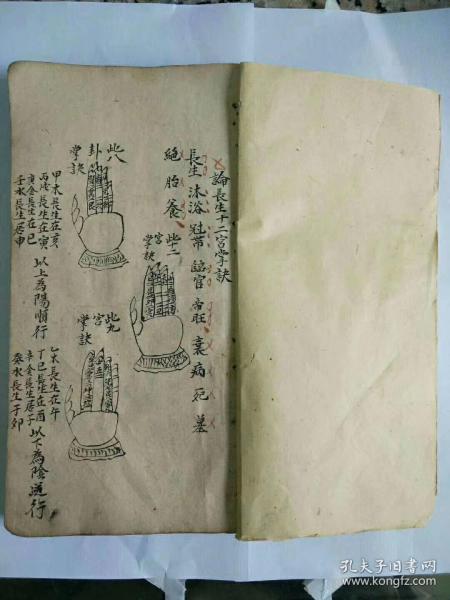 論長生十二宮掌訣
長生 沐浴 冠帶 臨官 帝旺 衰 病 死 墓
絕 胎 養
此二
宮
掌訣
此八
卦
掌訣
甲木長生在亥
丙戊長生在寅
庚金長生在巳
壬水長生居申
以上為陽順行
此九
宮
掌訣
乙木長生在午
丁巳長生在酉
辛金長生居子
癸水長生于卯
以下為陰逆行
孔夫子旧书网
www.kongfz.com